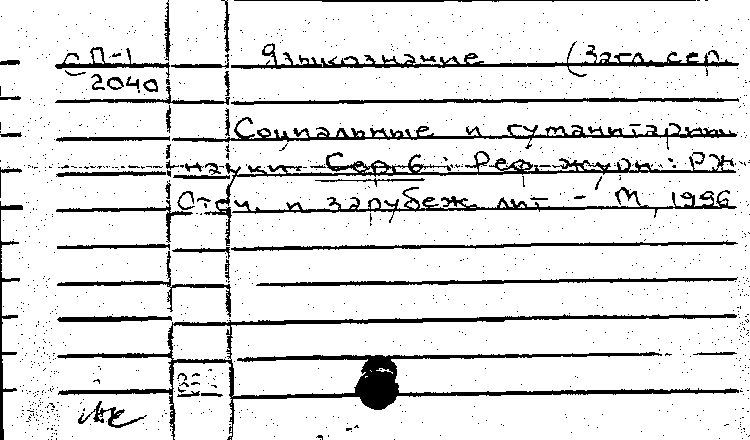 СП-1 Языкознание (Загл. сер.
2040
Социальные и гуманитарные
науки. Сер. 6 : Реф. журн. : РЖ
Отеч. и зарубеж. лит - М, 1996